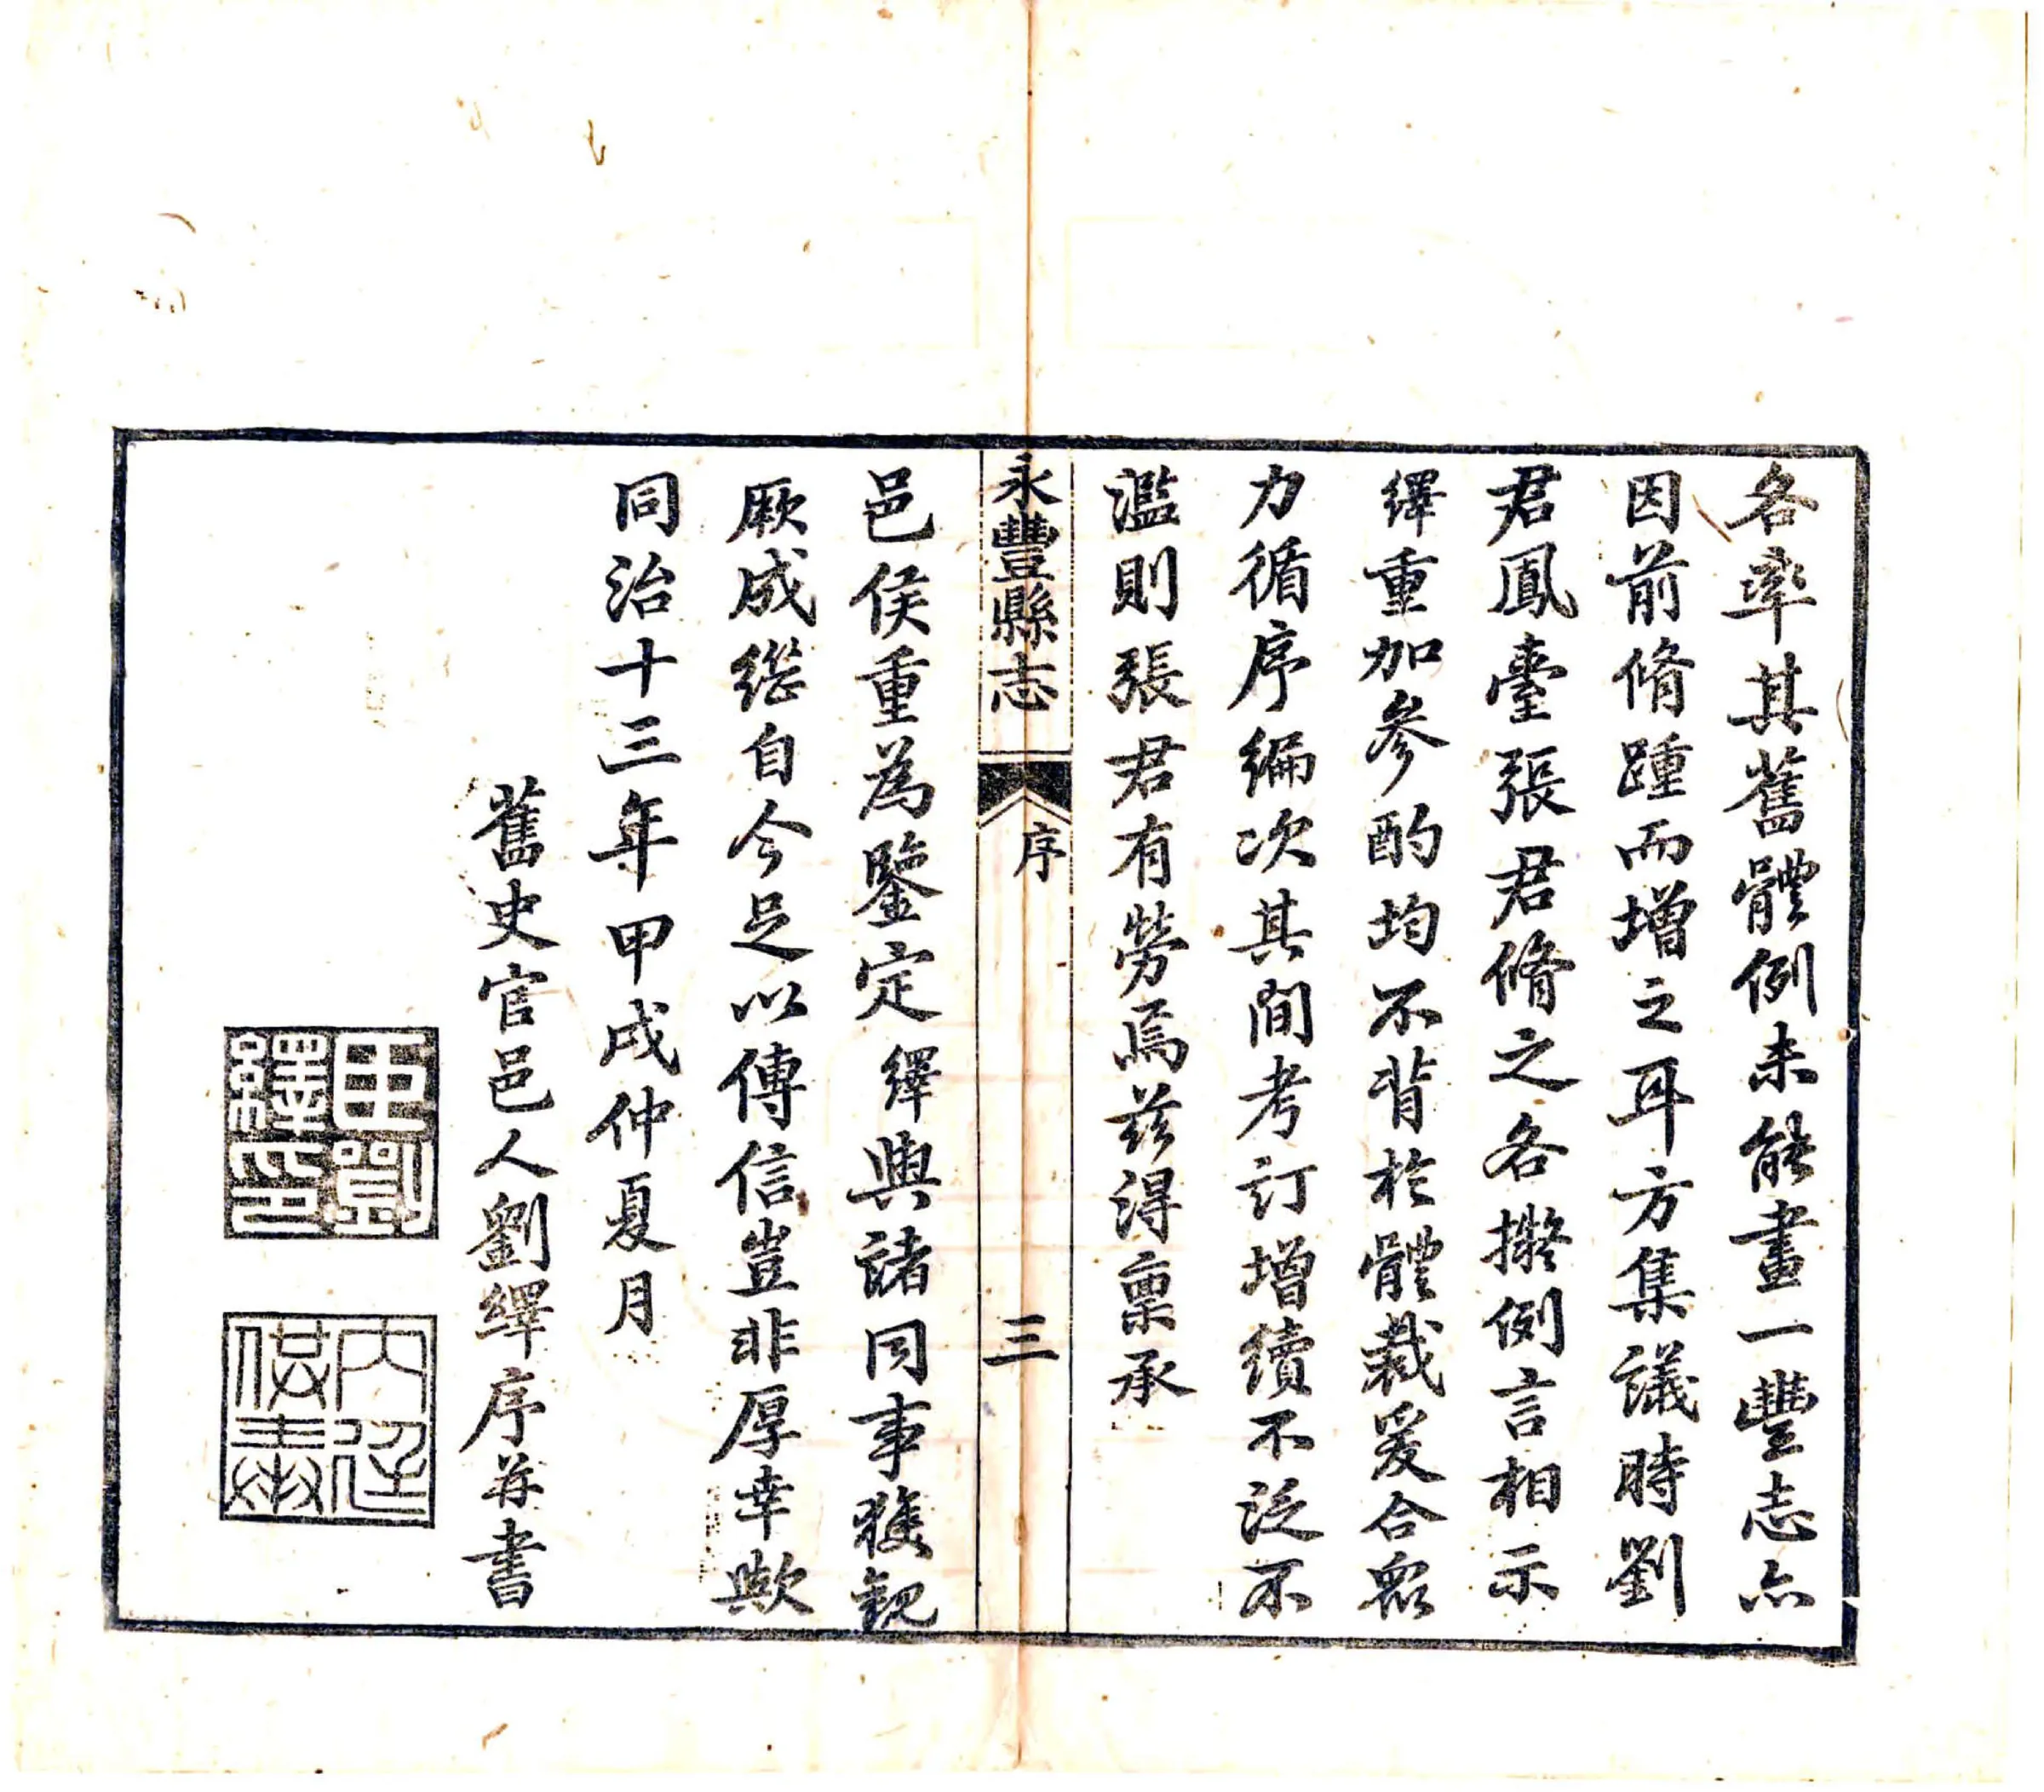 各率其舊體例未能畫一豐志亦
因前脩踵而增之耳方集議時劉
君鳳臺張君脩之各擬例言相示
繹重加參酌均不背於體裁爰合衆
力循序編次其間考訂增續不泛不
濫則張君有勞焉茲得稟承
永豐縣志
序
三
邑侯重為鑒定繹與諸同事獲觀
厥成繼自今足以傳信豈非厚幸歟
同治十三年甲戌仲夏月
舊史官邑人劉繹序并書
臣劉繹印
內廷供奉